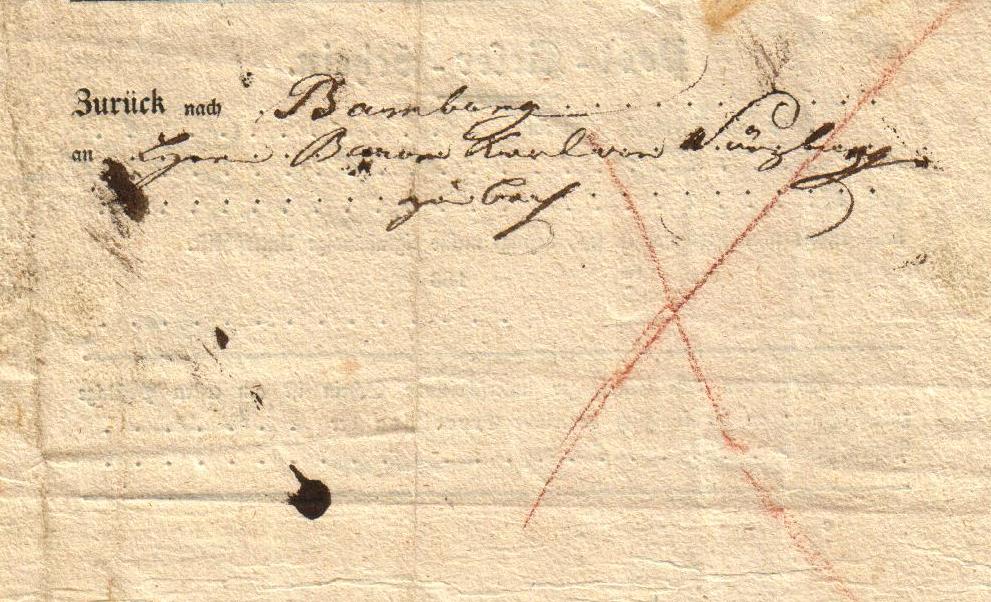 Zurück nach Bamberg
an Herrn Baron Karl von Würzburg